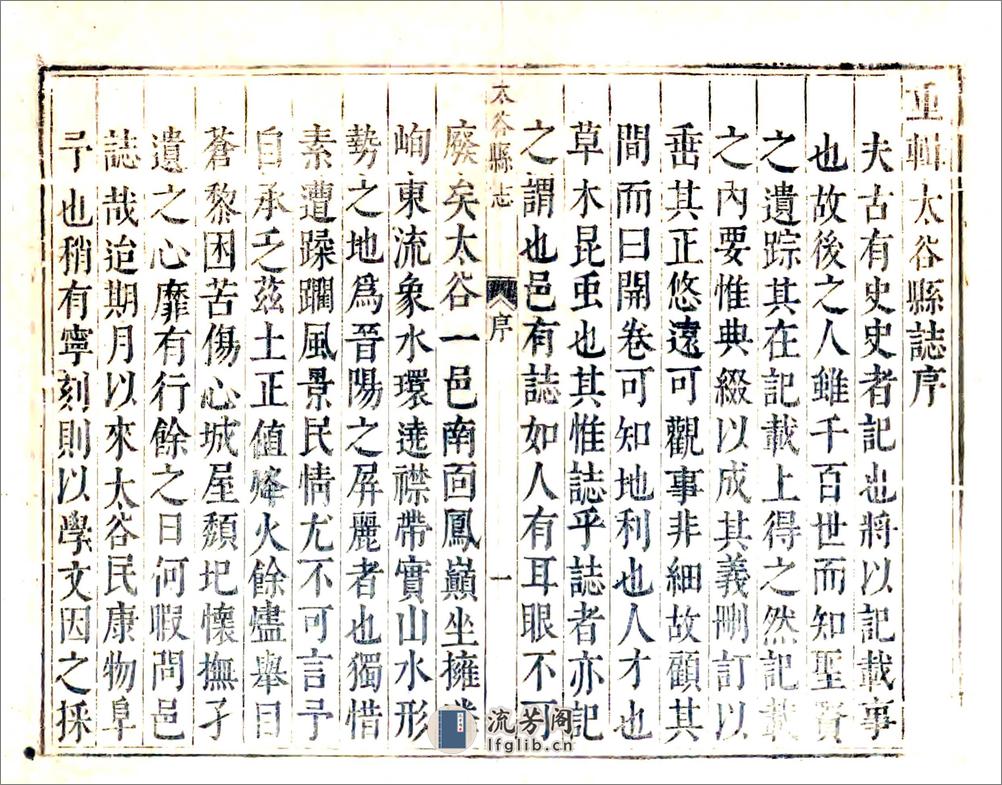 重輯太谷縣誌序
夫古有史史者記也將以記載事
也故後之人雖千百世而知聖賢
之遺踪其在記載上得之然記載
之內要惟典綴以成其義刪訂以
垂其正悠遠可觀事非細故顧其
間而曰開卷可知地利也人才也
草木昆虫也其惟誌乎誌者亦記
之謂也邑有誌如人有耳眼不可
太谷縣志 序 一
廢矣太谷一邑南面鳳巔坐擁
峋東流象水環遶襟帶實山水形
勢之地爲晉陽之屏麗者也獨惜
素遭蹂躪風景民情尤不可言予
自承乏茲土正值烽火餘燼舉目
蒼黎困苦傷心城屋頹圮懷撫孑
遺之心靡有行餘之日何暇問邑
誌哉迨期月以來太谷民康物阜
予也稍有寧刻則以學文因之採
流芳阁
lfglib.cn